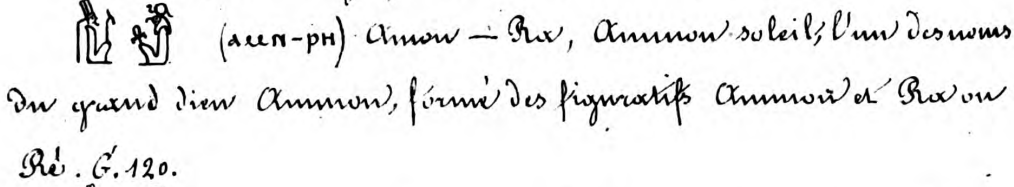 (ⲁⲙⲛ-ⲣⲏ) Amon — Ra, Ammon soleil, l'un des noms
du grand dieu Ammon, formé des figuratifs Ammon et Ra ou
Ré. G. 120.